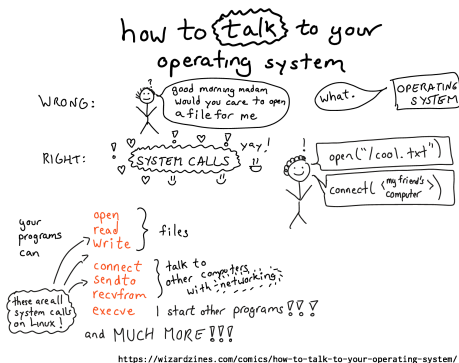 how to talk to your
operating system
WRONG:
good morning madam
would you care to open
a file for me
what.
OPERATING
SYSTEM
RIGHT:
SYSTEM CALLS
yay!
open("/cool.txt")
connect(<my friend's
computer>)
your
programs
can
open
read
write
files
connect
sendto
recvfrom
talk to
other computers
with networking
execve
I start other programs!!!
these are all
system calls
on Linux!
and MUCH MORE!!!
https://wizardzines.com/comics/how-to-talk-to-your-operating-system/